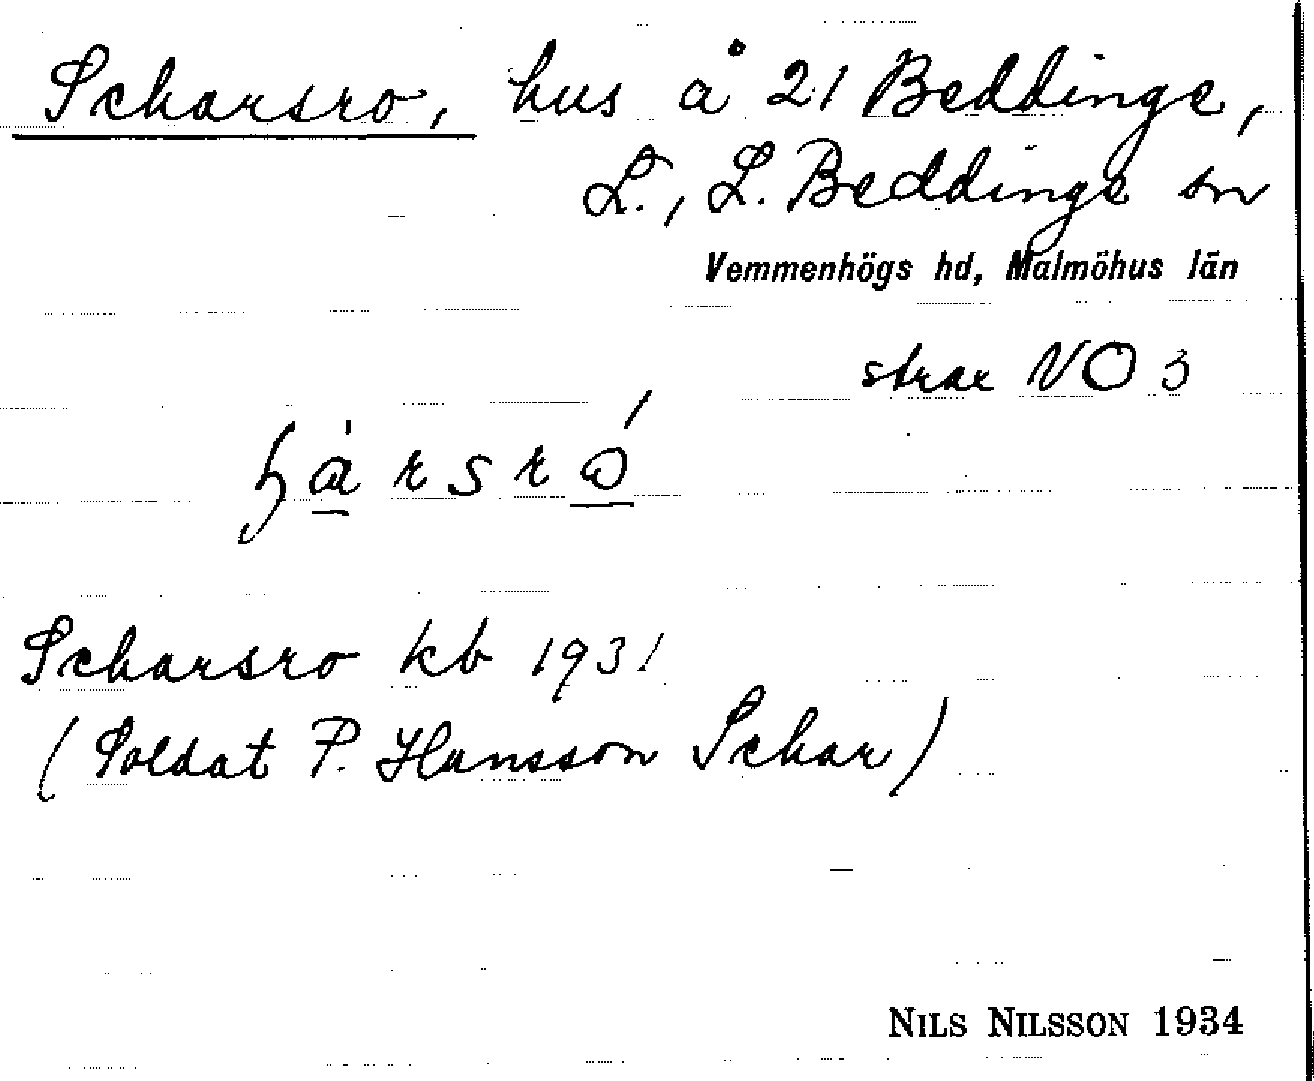 Scharsro, hus å 21 Beddinge,
L., L. Beddinge sn
Vemmenhögs hd, Malmöhus län
strax NO 3
Scharsro kb 1931
(Soldat P. Hansson Schar)
NILS NILSSON 1934